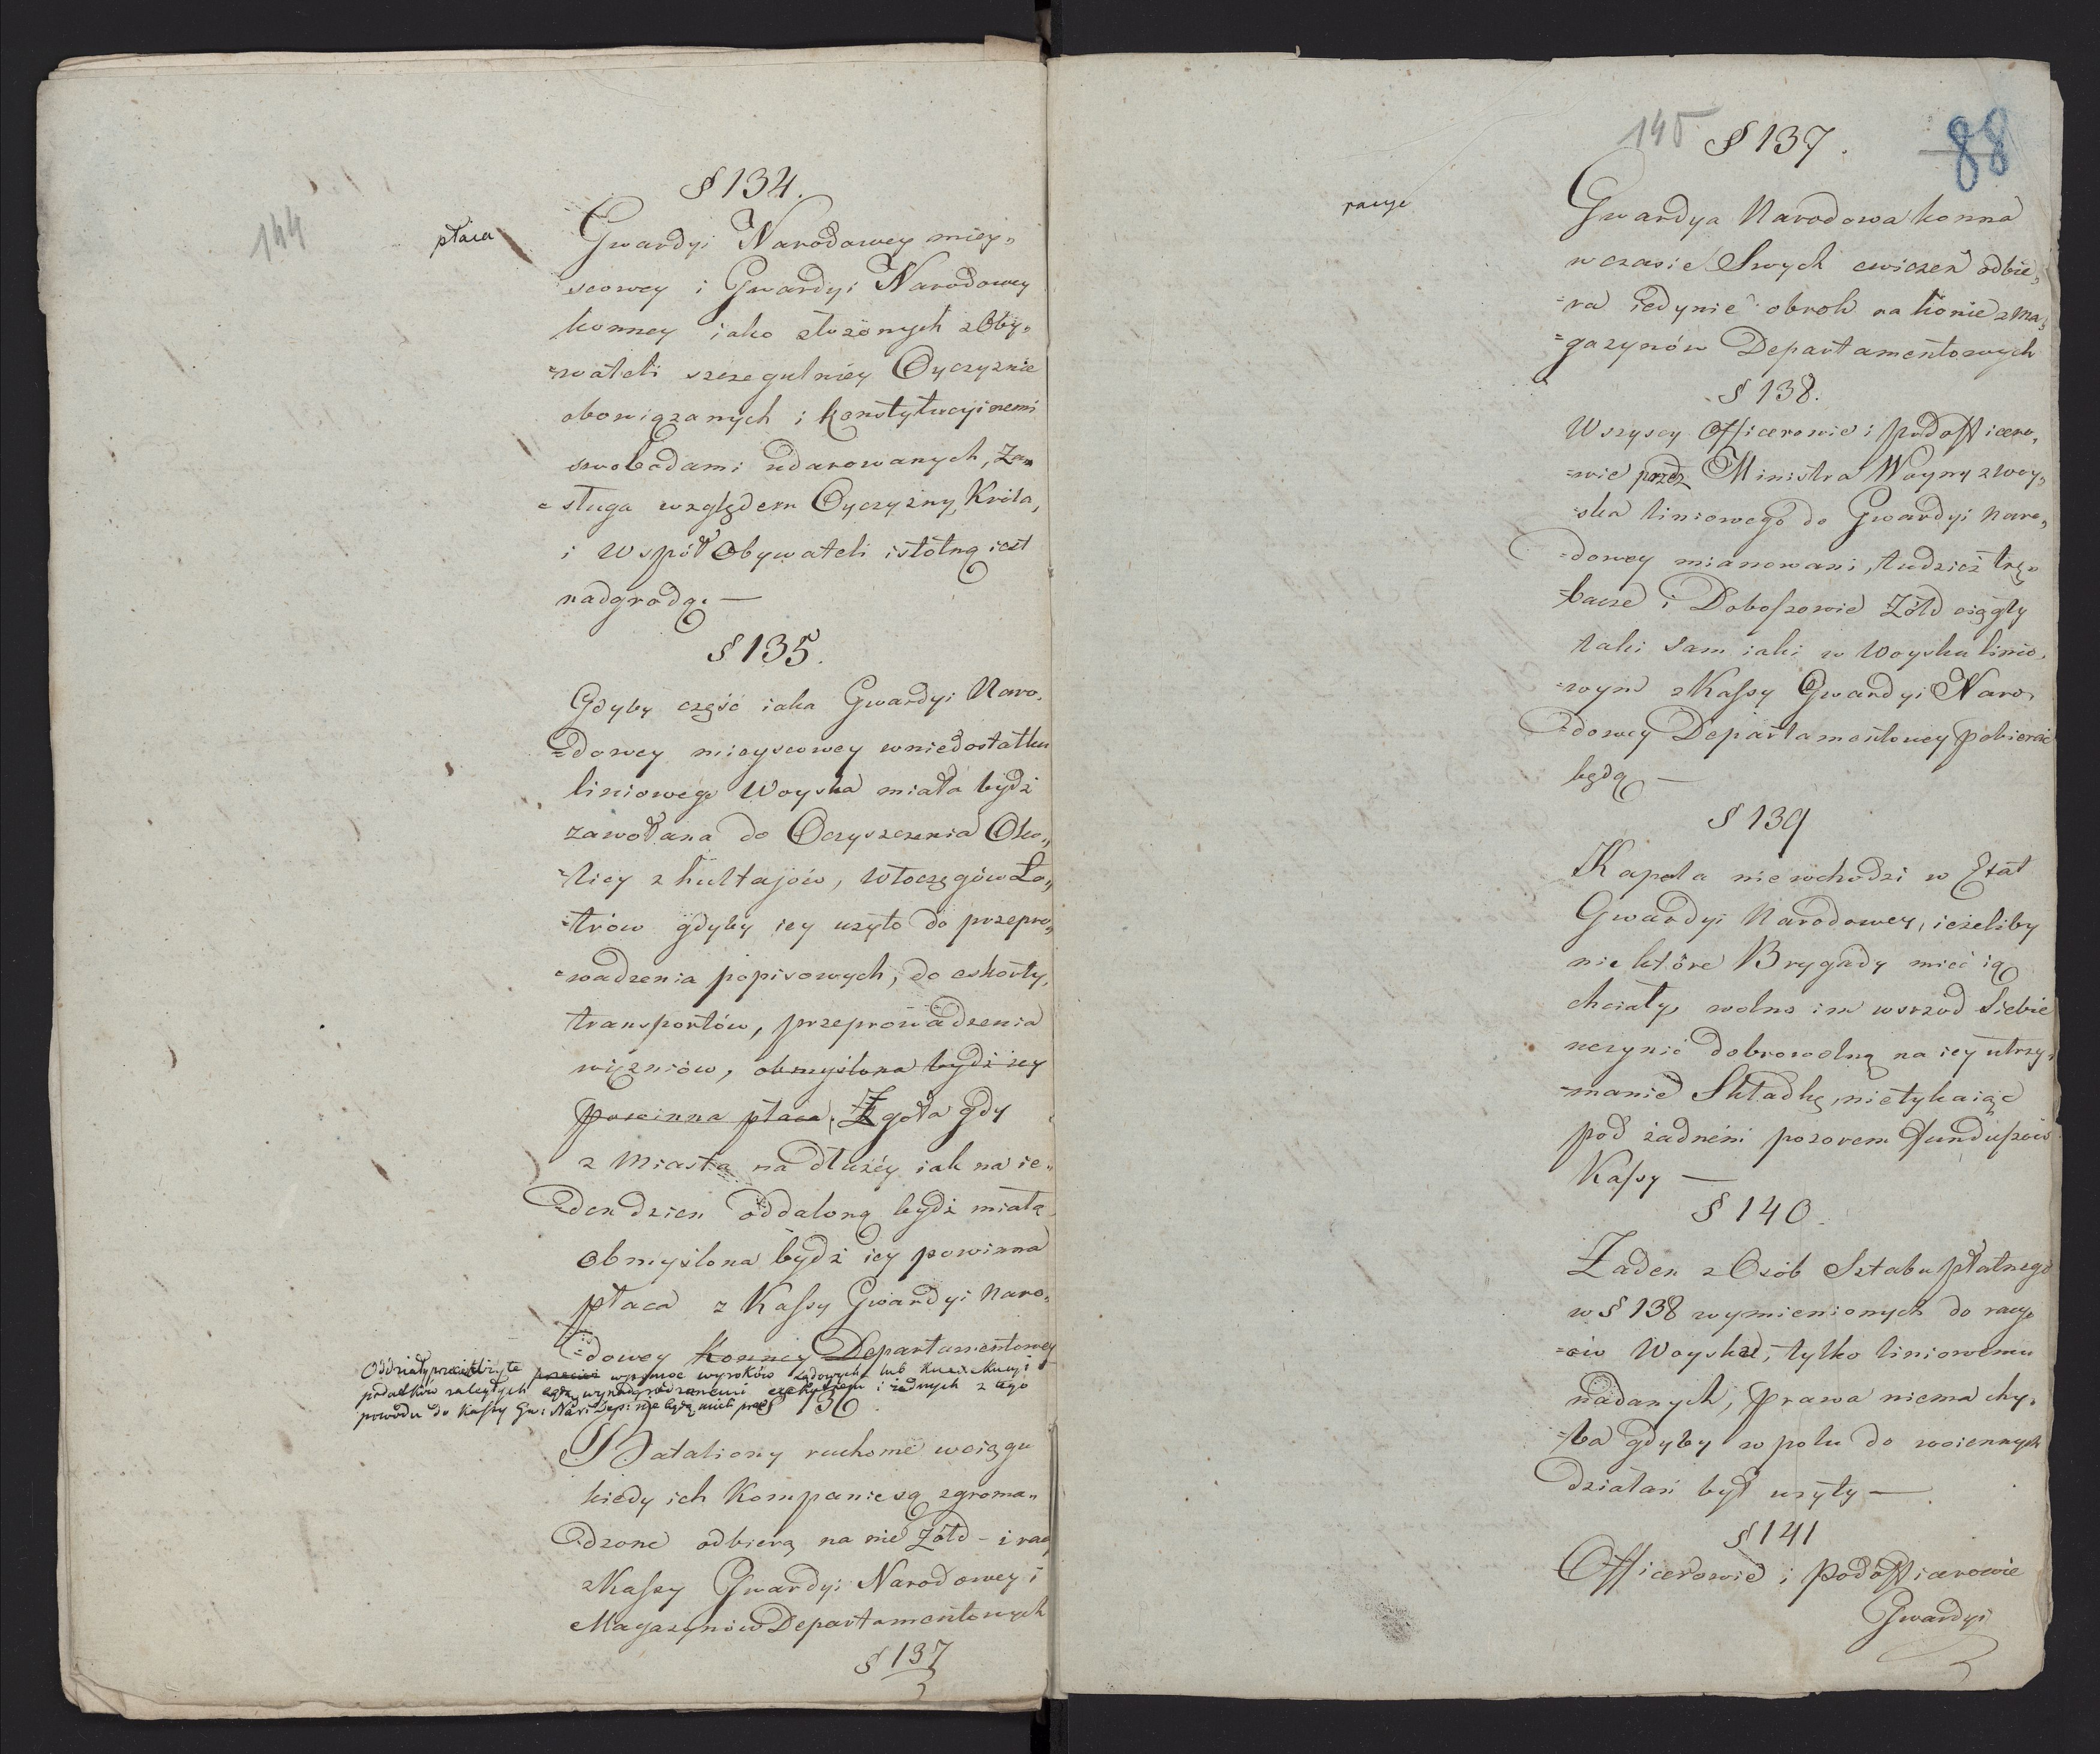 144
płaca
§ 134.
Gwardyi Narodowey miey„
scowey i Gwardyi Narodowey
konney iako złożonych z Oby„
wateli szczegulniéy Oyczyznie
obowiązanych i konstytucyinemi
swobodami udarowanych, Za„
sługa względem Oyczyzny, Króla,
i Wspóŀ Obywateli istotną iest
nadgrodą. —
§ 135.
Gdyby część iaka Gwardyi Naro„
=dowey mieyscowey w niedostatku
liniowego Woyska miała bydź
zawołana do Oczyszczenia Oko„
=licy z hultajów, włóczęgów Ło„
=trów gdyby iey użyto do przepro„
=wadzenia popisowych, do eskorty,
transportów, przeprowadzenia
więzniów, obmyślona bydź iey
powinna płaca; Zgoła gdy
z Miasta na dłużéy iak na ie„
=den dzien oddaloną bydź miała
obmyślona bydź iey powinna
płaca z Kassy Gwardyi Naro„
=dowey Konney Departamentowey
Oddziały wysłane wyroków Sądowych lub
podatków zaległych będą wynadgrodzonemi i żadnych z tego
powodu do Kassy Gw: Nar: Dep: nie będą mieli
§ 136.
Bataliony ruchome w ciągu
kiedy ich Kompanie są zgroma„
dzone odbierą na nie Żółd – i racy
z Kassy Gwardyi Narodowey i
Magazynów Departamentowych
§ 137
145
88
racye
§ 137.
Gwardya Narodowa konna
w czasie Swych cwiczeń odbie„
=ra iedynie obrok na konie z Ma„
=gazynów Departamentowych
§ 138.
Wszyscy Officerowie i podofficero„
=wie przez Ministra Woyny z woy„
ska liniowego do Gwardyi Naro„
=dowey mianowani, tudzież trę„
=bacze i Doboszowie Żółd ciągły
taki sam iaki w Woysku linio„
=wym z Kassy Gwardyi Naro„
=dowey Departamentowey pobierać
będą —
§ 139
Kapela nie wchodzi w Etat
Gwardyi Narodowey, ieżeliby
nie które Brygady mieć ią
chciały, wolno im wsrzód Siebie
uczynić dobrowolną na iey utrzy„
=manie Składkę, nietykaiąc
pod żadném pozorem funduszów
Kassy —
§ 140.
Żaden z Osób Sztabu płatnego
w § 138 wymienionych do racy„
=ów Woysku, tylko liniowemu
nadanych, prawa niema chy„
=ba gdyby w polu do woiennych
działań był użyty —
§ 141
Officerowie i podofficerowie
Gwardyi